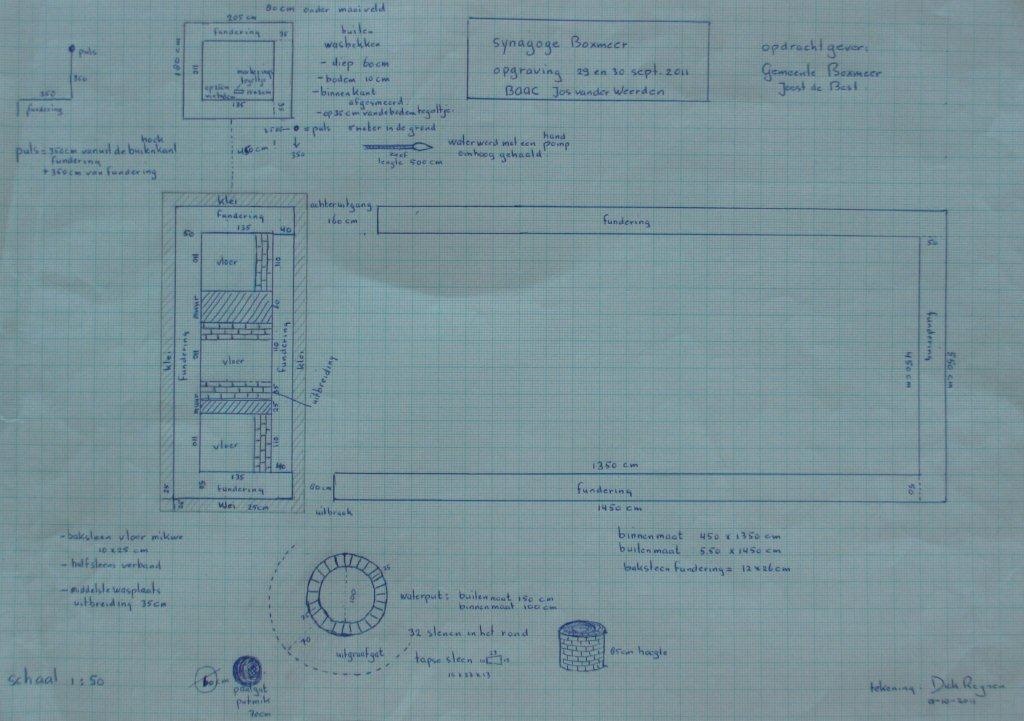 80 cm onder maaiveld
205 cm
fundering
35
180 cm
110
markerings
tegeltje
135
35
buiten
wasbekken
- diep 60cm
- bodem 10cm
- binnenkant
afgesmeerd
- op 35 cm van de bodem tegeltje
puls
350
350
fundering
synagoge Boxmeer
opgraving 29 en 30 sept. 2011
BAAC Jos van der Weerden
opdrachtgever:
Gemeente Boxmeer
Joost de Best
= puls 5 meter in de grond
350
lengte 500 cm
water werd met een hand
pomp
omhoog gehaald
hoek
puls = 350cm vanuit de buitenkant
fundering
+ 350 cm van fundering
klei
fundering
135
40
50
110
vloer
110
muur
60
klei
fundering
110
vloer
110
fundering
klei
35
uitbreiding
muur
25
110
vloer
110
40
135
fundering
25
25
klei 25cm
achteruitgang
160 cm
fundering
50
fundering
450 cm
550 cm
1350 cm
80 cm
fundering
50
uitbraak
1450 cm
- baksteen vloer mikwe
10 x 25 cm
- halfsteens verband
- middelste wasplaats
uitbreiding 35cm
binnenmaat 450 x 1350 cm
buitenmaat 5.50 x 1450 cm
baksteen fundering = 12 x 26 cm
25
100
40
uitgraafgat
waterput: buitenmaat 150 cm
binnenmaat 100 cm
32 stenen in het rond
tapse steen
85cm hoogte
schaal 1:50
paalgat
70cm
tekening: Dick Reynen